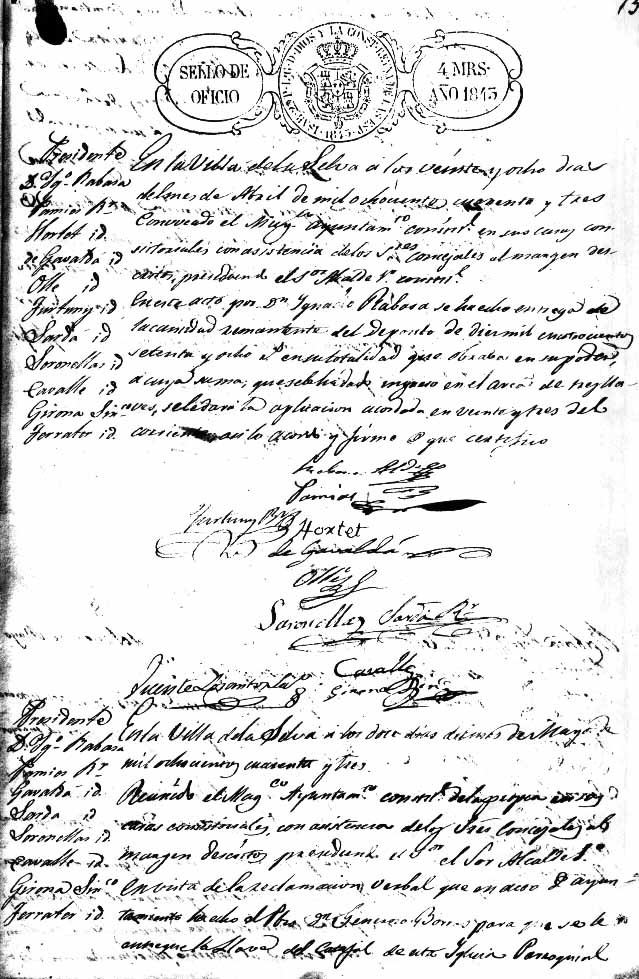 15
SELLO DE OFICIO
4 MRS.
AÑO 1843
ISAB. 2ª P. L. G. D. DIOS Y LA CONST. REYNA DE LAS ESP. 1843
Presidente
D. Ygº Rabasa
Pamies Rr
Hortet id.
de Gavaldá id
Olle id
Furtuny id
Sardá id
Soronellas id
Cavalle id
Girona Sinco
Ferrater id.
En la Villa de la Selva a los veinte y ocho dias
del mes de Abril de mil ochocientos cuarenta y tres
Convocado el Muy Iе Ayuntamto constitl en sus casas con
sistoriales con asistencia de los Sres Concejales al margen des
critos, presidiendo el Sor Alcalde 1º constitl
En este acto por Dn Ignacio Rabasa se ha echo entrega de
la cantidad remanente del deposito de diez mil cuatrocientos
setenta y ocho rs en su totalidad que obraba en su poder,
a cuya suma, que se ha ingreso en el arca de tres lla
ves, se le dará la aplicacion acordada en veinte y tres del
corriente asi lo acordó y firmó de que certifico
Rabasa Alde
Pamies
Furtuny Rr
Hortet
de Gavaldá
Olle
Soronellas
Sardá Rr
Cavalle
Girona Sinco
Presidente
D. Ygº Rabasa
Pamies Rr
Gavaldá id
Sarda id
Soronellas id.
Cavalle id.
Girona Sinco
Ferrater id.
En la Villa de la Selva a los doce dias del mes de Mayo de
mil ochocientos cuarenta y tres
Reunido el Mag.co Ayuntamto constitl de la propia en sus
casas consistoriales, con asistencia de los Sres Concejales al
margen descritos presidiendo el Sor Alcalde 1º
en vista de la reclamacion verbal que en acto de ayun
tamiento ha echo el Pbro Dn Genencio Borras para que se le
entregue la llave del de esta Iglesia Parroquial